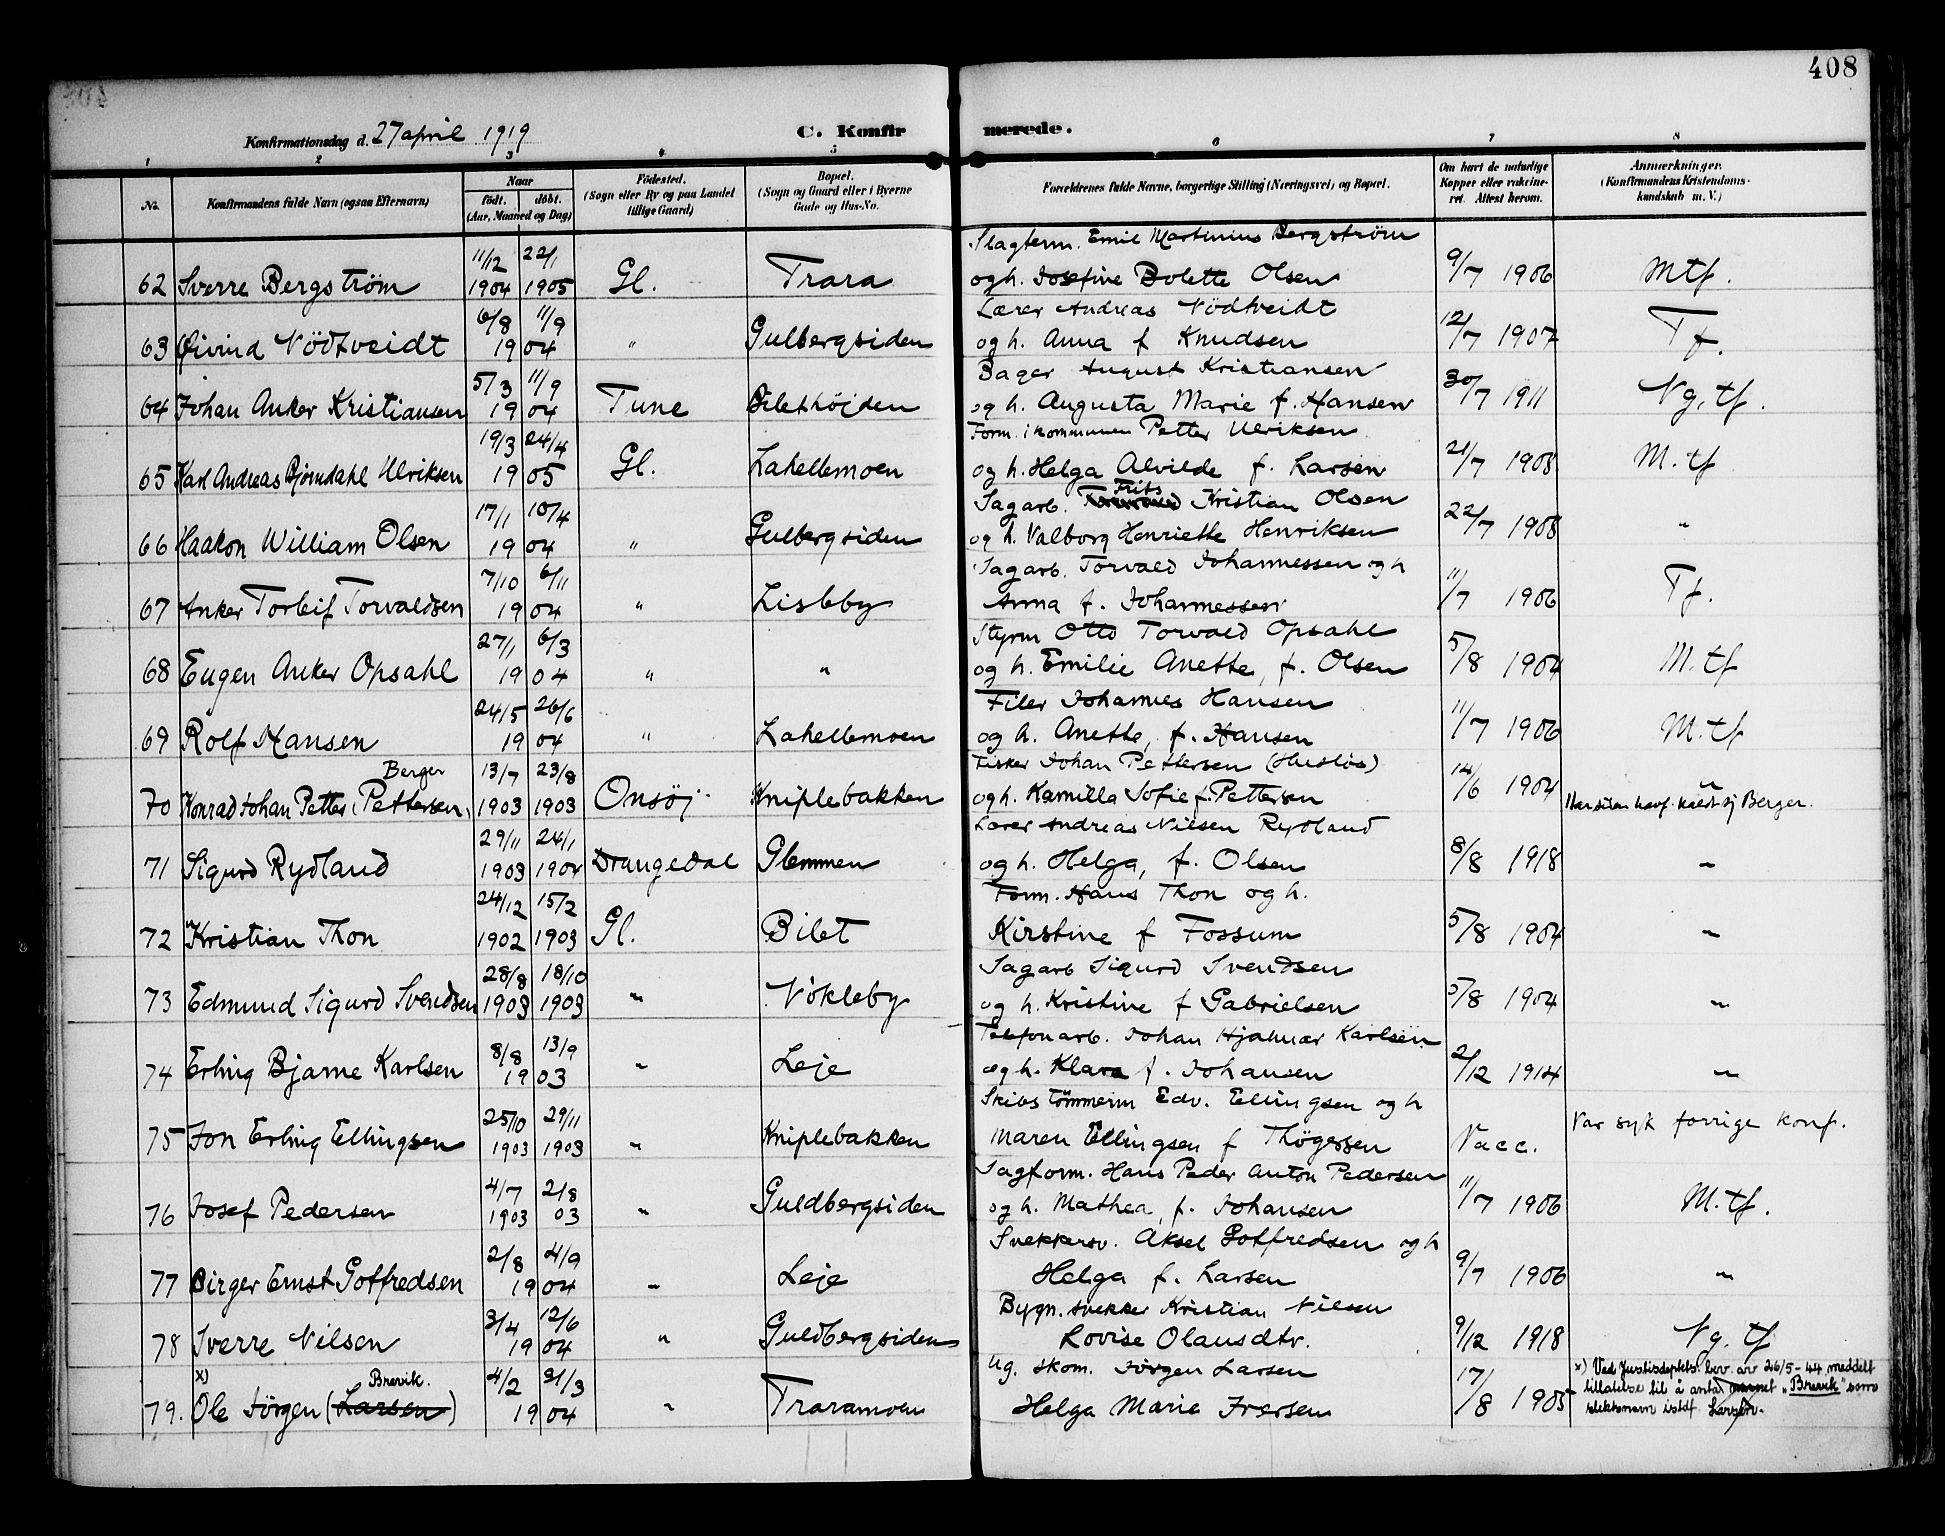 408
Konfirmationsdag d. 27 april 1919
C. Konfirmerede.
1 2 3 4 5 6 7 8
No.
Konfirmandens fulde Navn (ogsaa Efternavn)
Naar
födt. döbt.
(Aar, Maaned og Dag)
Födested.
(Sogn eller By og paa Landet
tillige Gaard)
Bopæl.
(Sogn og Gaard eller i Byerne
Gade og Hus-No.
Forældrenes fulde Navne, borgerlige Stilling (Næringsvei) og Bopæl.
Om havt de naturlige
Kopper eller vakcine-
ret. Attest herom.
Anmærkninger.
(Konfirmandens Kristendoms-
kundskab m. V.)
11/12 22/1 Slagterm. Emil Martinius Bergström
62 Sverre Bergström 1904 1905 Gl. Trara og h. Josefine Bolette Olsen 9/7 1906 Mtf.
6/8 11/9 Lærer Andreas Nödtveidt
63 Øivind Nödtveidt 19 04 " Gulbergsiden og h. Anna f Knudsen 12/7 1907 Tf.
5/3 11/9 Bager August Kristiansen
64 Johan Anker Kristiansen 19 04 Tune Bilethöjden og h. Augusta Marie f. Hansen 30/7 1911 Ng. tf.
19/3 24/4 Form. i kommunen Petter Ulriksen
65 Karl Andreas Bjørndahl Ulriksen 19 05 Gl. Lahellemoen og h. Helga Alvilde f. Larsen 21/7 1908 M. tf
17/1 10/4 Sagarb. Frits Kristian Olsen
66 Haakon William Olsen 19 04 " Gulbergsiden og h. Valborg Henriette Henriksen 22/7 1908 "
7/10 6/11 Sagarb. Torvald Johannessen og h
67 Anker Torleif Torvaldsen 19 04 " Lisleby Anna f. Johannessen 11/7 1906 Tf.
27/1 6/3 Styrm Otto Torvald Opsahl
68 Eugen Anker Opsahl 19 04 " " og h. Emilie Anette, f. Olsen 5/8 1904 M. tf
24/5 26/6 Filer Johannes Hansen
69 Rolf Hansen 19 04 " Lahellemoen og h. Anette, f. Hansen 11/7 1906 M. tf
Berger 13/7 23/8 Fisker Johan Pettersen (Husløs)
70 Konrad Johan Petter (Pettersen) 1903 1903 Onsöj Kniplebakken og h. Kamilla Sofie f. Pettersen 14/6 1904 "
Har siden havf. kaldt sj Berger.
29/11 24/1 Lærer Andreas Nilsen Rydland
71 Sigurd Rydland 1903 1904 Drangedal Glemmen og h. Helga, f. Olsen 8/8 1918 "
24/12 15/2 Form. Hans Thon og h.
72 Kristian Thon 1902 1903 Gl. Bilet Kirstine f Fossum 5/8 1904 "
28/8 18/10 Sagarb Sigurd Svendsen
73 Edmund Sigurd Svendsen 1903 1903 " Nökleby og h. Kristine f Gabrielsen 5/8 1904 "
8/8 13/9 Telefonarb. Johan Hjalmar Karlsen
74 Erling Bjarne Karlsen 19 03 " Leje og h. Klara f. Johansen 2/12 1914 "
25/10 29/11 Skibstömmerm Edv. Ellingsen og h
75 Jon Erling Ellingsen 1903 1903 " Kniplebakken Maren Ellingsen f Thögersen Vacc. Var syk forrige konf.
4/7 2/8 Sagform. Hans Peder Anton Pedersen
76 Josef Pedersen 1903 03 " Guldbergsiden og h. Mathea, f. Johansen 11/7 1906 M. tf.
2/8 4/9 Snekkersv. Aksel Gotfredsen og h
77 Birger Ernst Gotfredsen 19 04 " Leje Helga f. Larsen 9/7 1906 "
3/4 12/6 Bygn. snekker Kristian Nilsen
78 Sverre Nilsen 19 04 " Guldbergsiden Lovise Olausdtr. 9/12 1918 Ng. tf
x) Brevik. 4/2 31/3 Ug. skom. Jörgen Larsen
79. Ole Jörgen (Larsen) 19 04 " Traramoen Helga Marie Iversen 17/8 1905
x) Ved Justisdeptets bev. av 26/5-44 meddelt
tillatelse til å anta navnet "Brevik" som
slektsnavn istdf. Larsen.